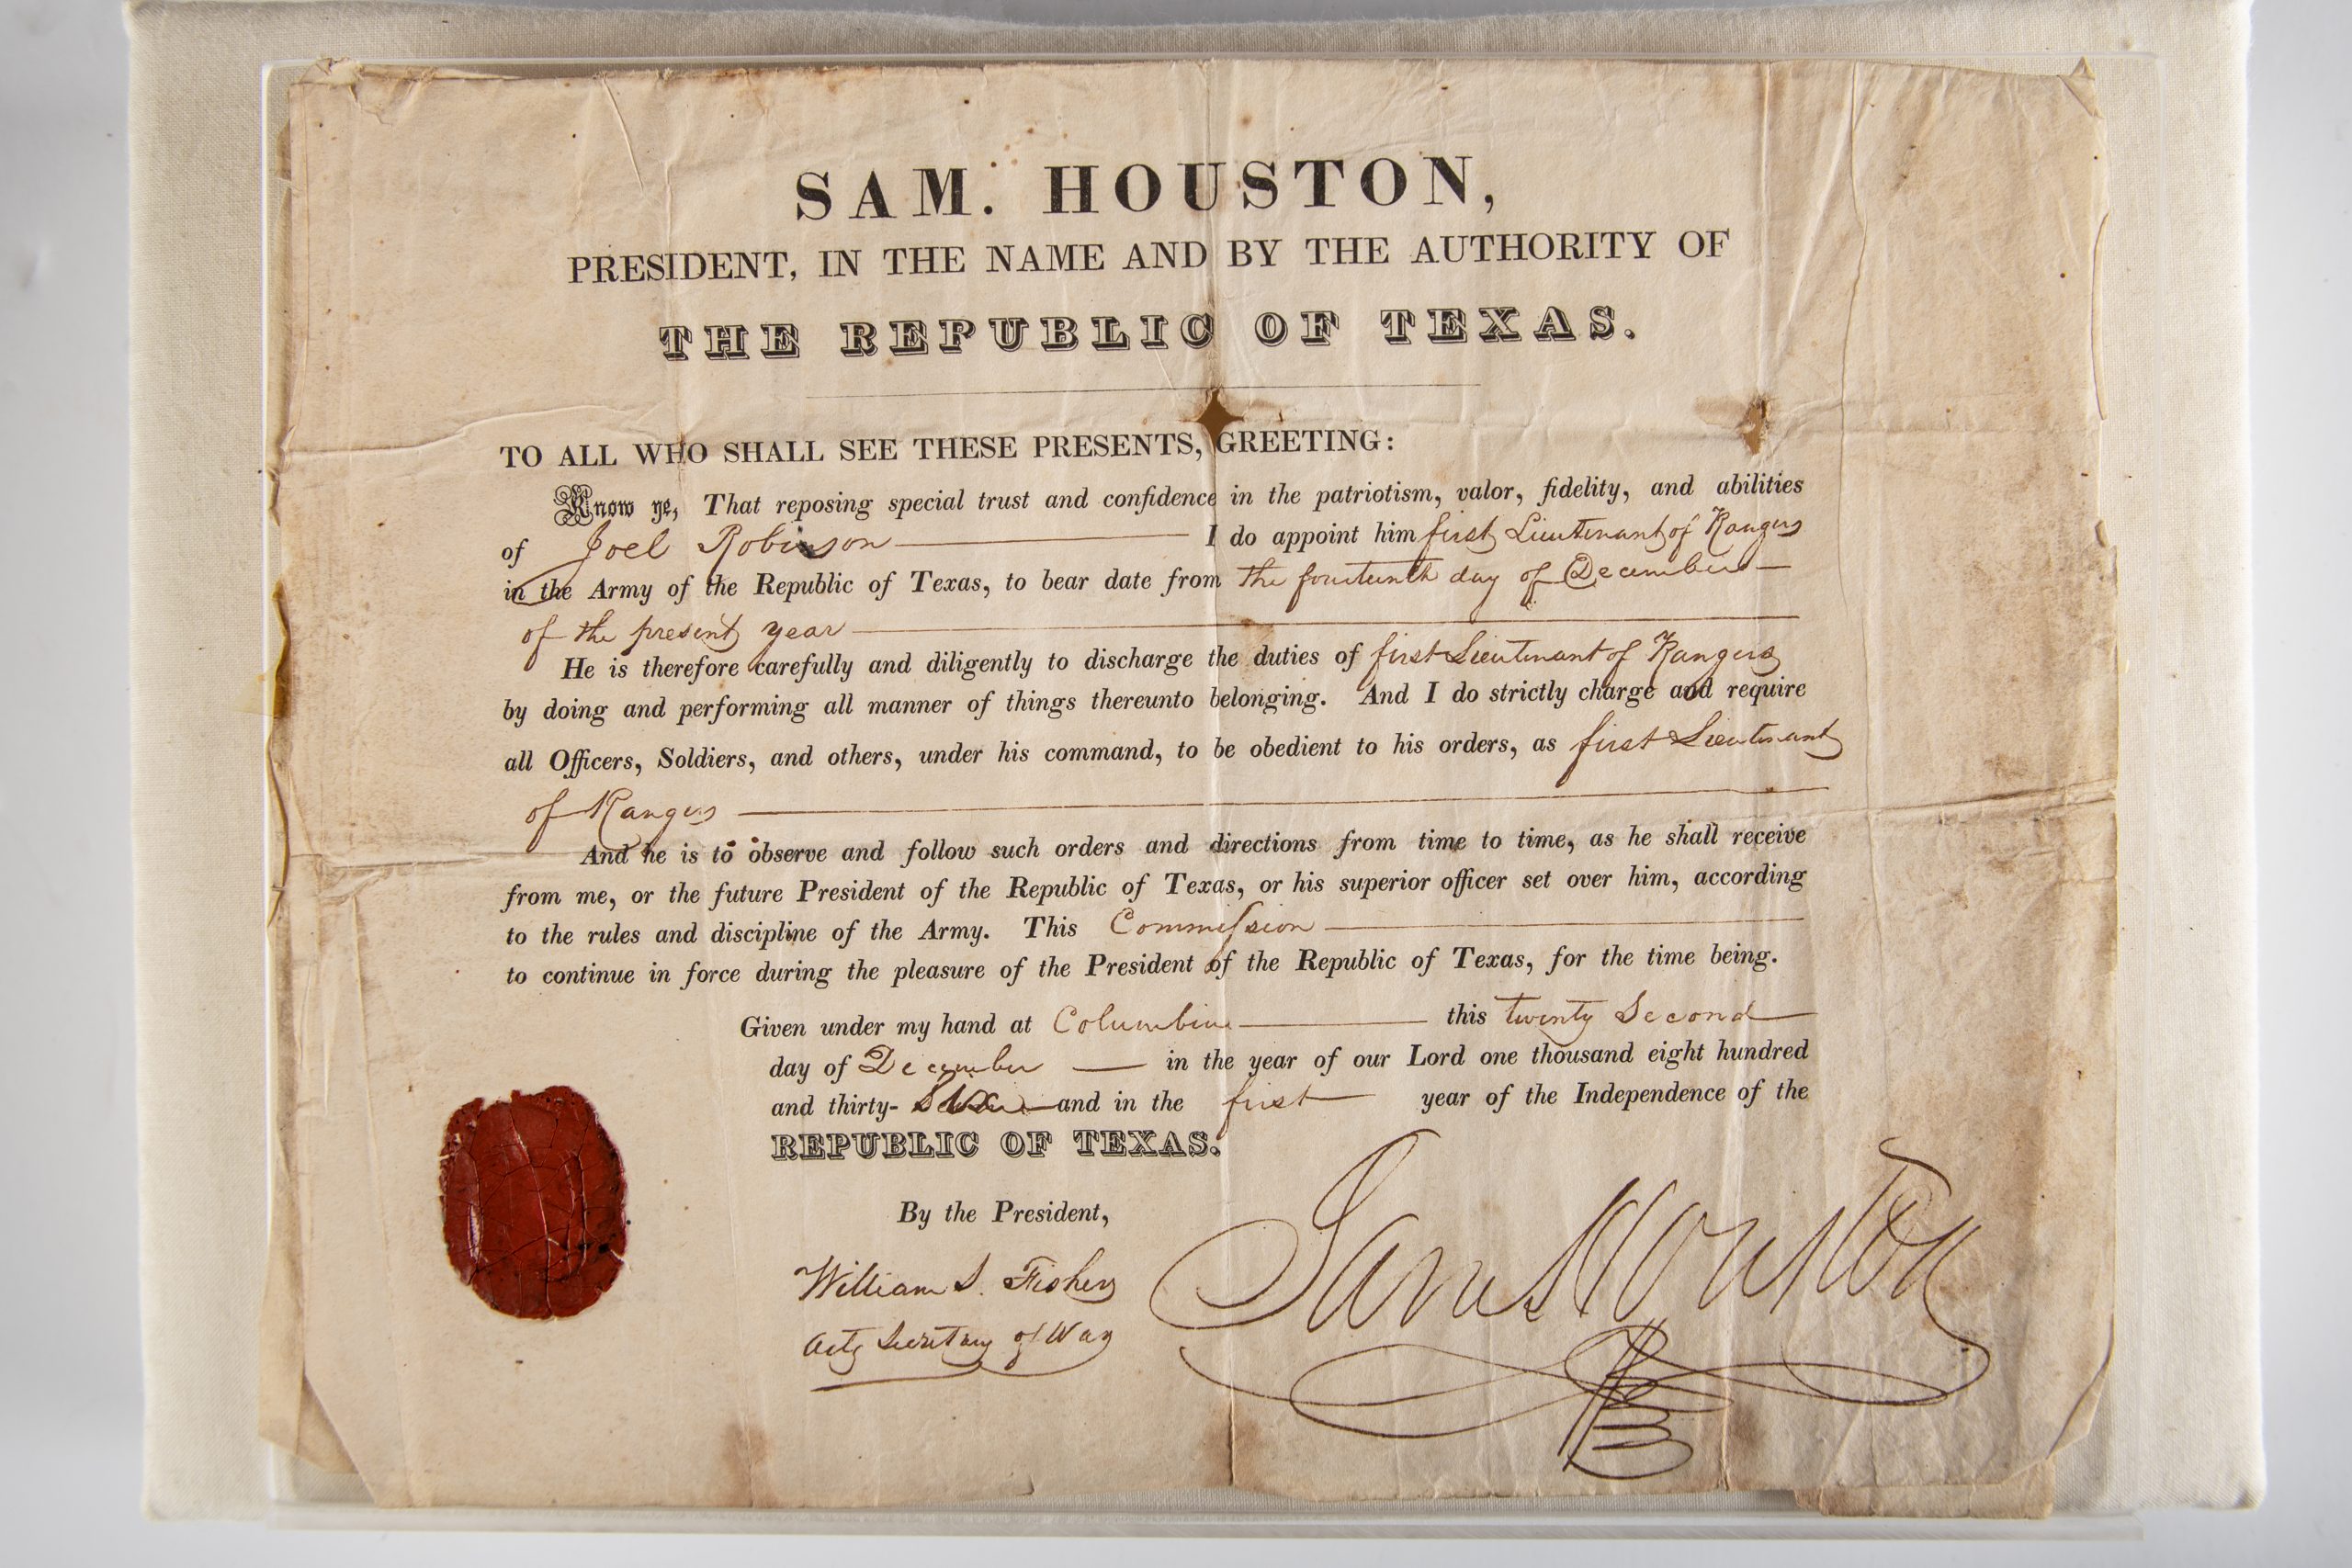 SAM. HOUSTON,
PRESIDENT, IN THE NAME AND BY THE AUTHORITY OF
THE REPUBLIC OF TEXAS.
TO ALL WHO SHALL SEE THESE PRESENTS, GREETING:
Know ye, That reposing special trust and confidence in the patriotism, valor, fidelity, and abilities
of Joel Robinson I do appoint him first Lieutenant of Rangers
in the Army of the Republic of Texas, to bear date from the fourteenth day of December
of the present year
He is therefore carefully and diligently to discharge the duties of first Lieutenant of Rangers
by doing and performing all manner of things thereunto belonging. And I do strictly charge and require
all Officers, Soldiers, and others, under his command, to be obedient to his orders, as first Lieutenant
of Rangers
And he is to observe and follow such orders and directions from time to time, as he shall receive
from me, or the future President of the Republic of Texas, or his superior officer set over him, according
to the rules and discipline of the Army. This Commission
to continue in force during the pleasure of the President of the Republic of Texas, for the time being.
Given under my hand at Columbia this twenty Second
day of December in the year of our Lord one thousand eight hundred
and thirty- and in the first year of the Independence of the
REPUBLIC OF TEXAS.
By the President,
William S. Fisher
Actg Secretary of War
Sam Houston